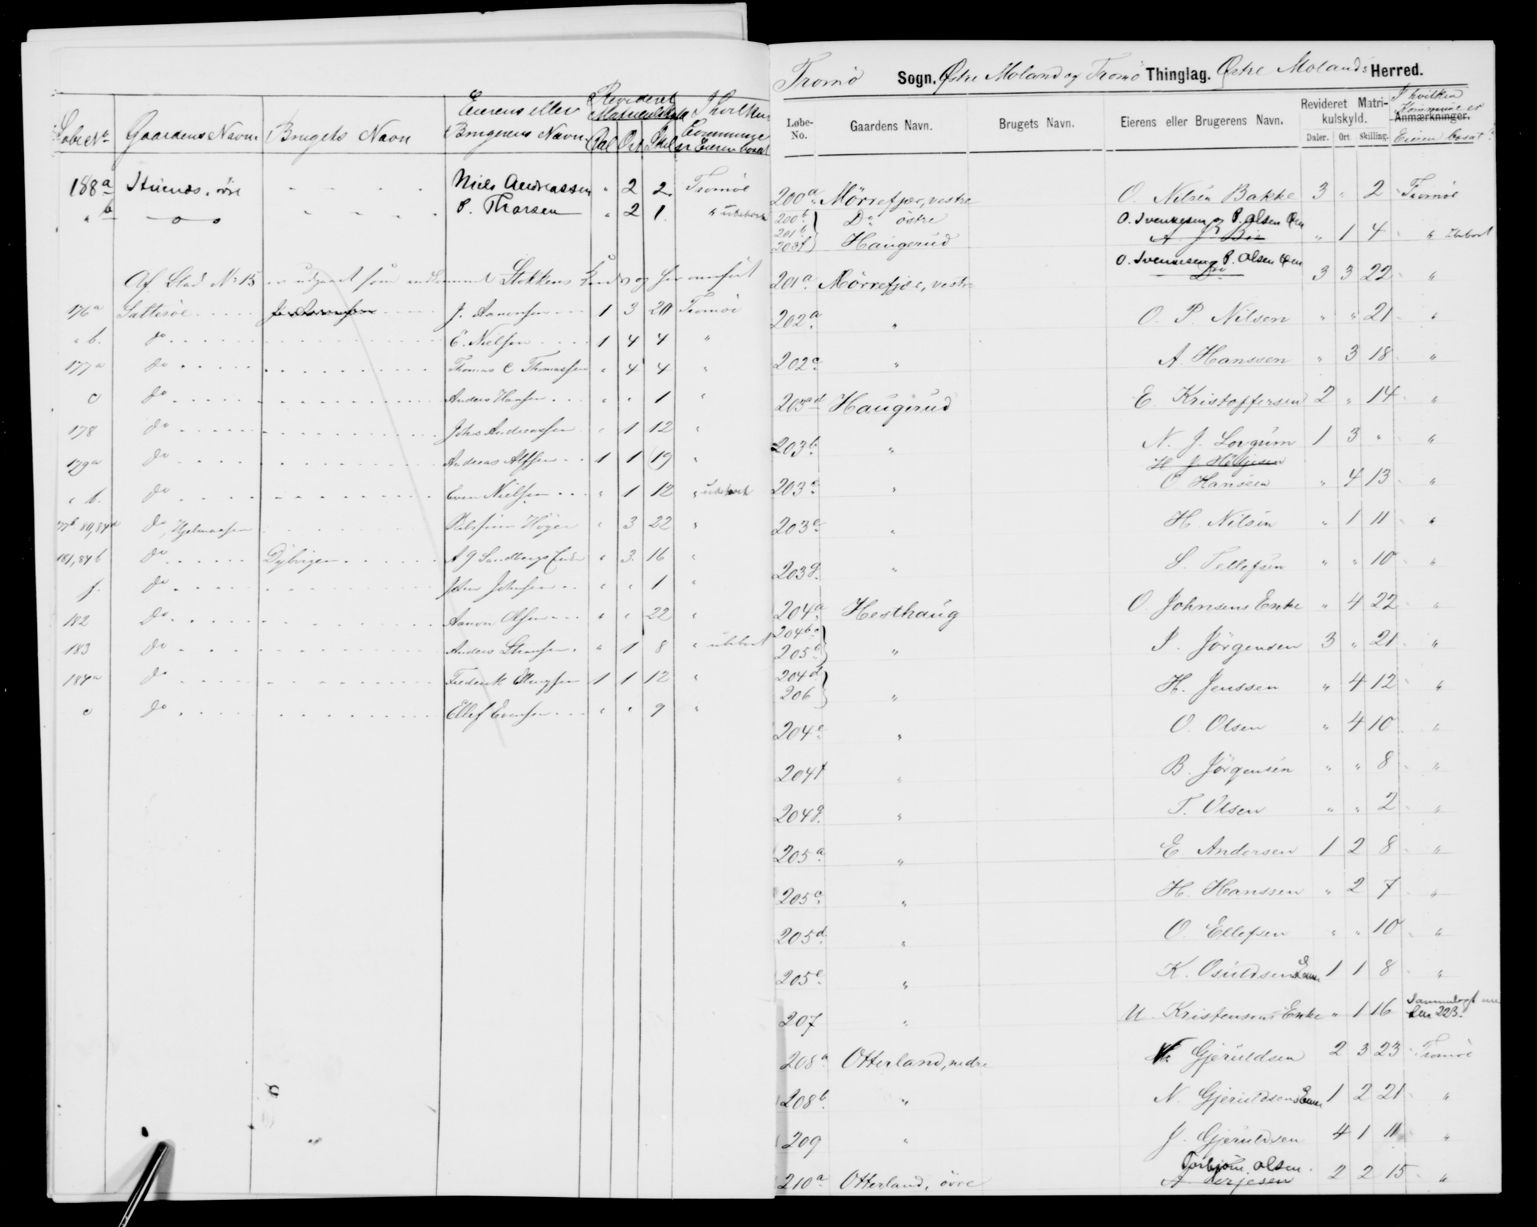 LøbeNr Gaardens Navn Brugets Navn Eierens eller Brugerens Navn Revideret Matrikulskyld Dal Ort Skil I hvilken Commune er Eieren bosat
188a Stuenæs, øvre - - - Niels Andreassen " 2 2 Tromöe
" b — o — o - - - P. Thorsen " 2 1 " ubebort
Af Blad No 15 er udgaaet som
176a Saltrøe J. Aanonsen 1 3 20 Tromöe
" b. do E. Nielsen 1 4 4 "
177a do Thomas C Thomassen " 4 4 "
c do Anders Hansen " " 1 "
178 do Johs Andreassen " 1 12 "
179a do Andreas Alfsen 1 1 19 "
" b. do Even Nielsen " 1 12 " ubebort
do, Hjelmaasen Høyer " 3 22 "
181,84b do Dybvigen A G Sandbergs Enke " 3 16 "
f. do Johnsen " " 1 "
182 do Aanon Olsen " " 22 "
183 do Anders " 1 8 " ubebort
184a do Frederik 1 1 12 "
c do Ellef Evensen " " 9 "
Tromö Sogn. Østre Moland og Tromö Thinglag. Østre Molands Herred.
Løbe-No. Gaardens Navn. Brugets Navn. Eierens eller Brugerens Navn. Revideret Matrikulskyld. Daler. Ort. Skilling. I hvilken Kommune er Anmærkninger. Eieren bosat?
200a Mörrefjær, vestre O. Nilsen Bakke 3 " 2 Tromöe
200b D° östre O. Svenkesen og P. Olsen
201b
203f Haugerud " 1 4 "
201a Mörrefjær, vestre O. Svenkesen og P. Olsen 3 3 22 "
202a " O. P. Nilsen " " 21 "
202c " A. Hanssen " 3 18 "
203ad Haugerud E. Kristoffersen 2 " 14 "
203b " N. J. Lovgrim 1 3 " "
203c " O Hansen " 4 13 "
203e " H. Nilsen " 1 11 "
203g. " S. Tellefsen " " 10 "
204a Hesthaug O Johnsens Enke " 4 22 "
204b
205b " S. Jörgensen 3 " 21 "
204d
206 " H. Jenssen " 4 12 "
204e " O. Olsen " 4 10 "
204f " B. Jörgensen " " 8 "
204g. " T. Olsen " " 2 "
205a " E Andersen 1 2 8 "
205c " H. Hanssen " 2 7 "
205d " O. Ellefsen " " 10 "
205e " K. Osuldsens Enke 1 1 8 "
207 " U. Kristensens Enke " 1 16 Sammenlagt med Lno 223.
208a Otterland, nedre N. Gjeruldsen 2 3 23 Tromöe
208b " N. Gjeruldsens Enke 1 2 21 "
209 " J. Gjeruldsen 4 1 11 "
210a Otterland, övre Torbjörn Olsen 2 2 15 "
A Terjesen